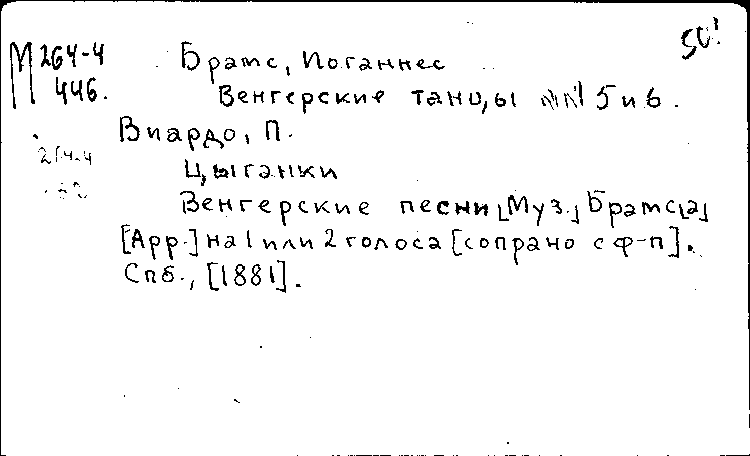 50!
М 264-4
446.
Брамс, Иоганнес
Венгерские танцы №№ 5 и 6.
Виардо, П.
264-4
Цыганки
Венгерские песни [Муз.] Брамс[а]
[Арр.] на 1 или 2 голоса [сопрано с ф-п].
Спб., [1881].